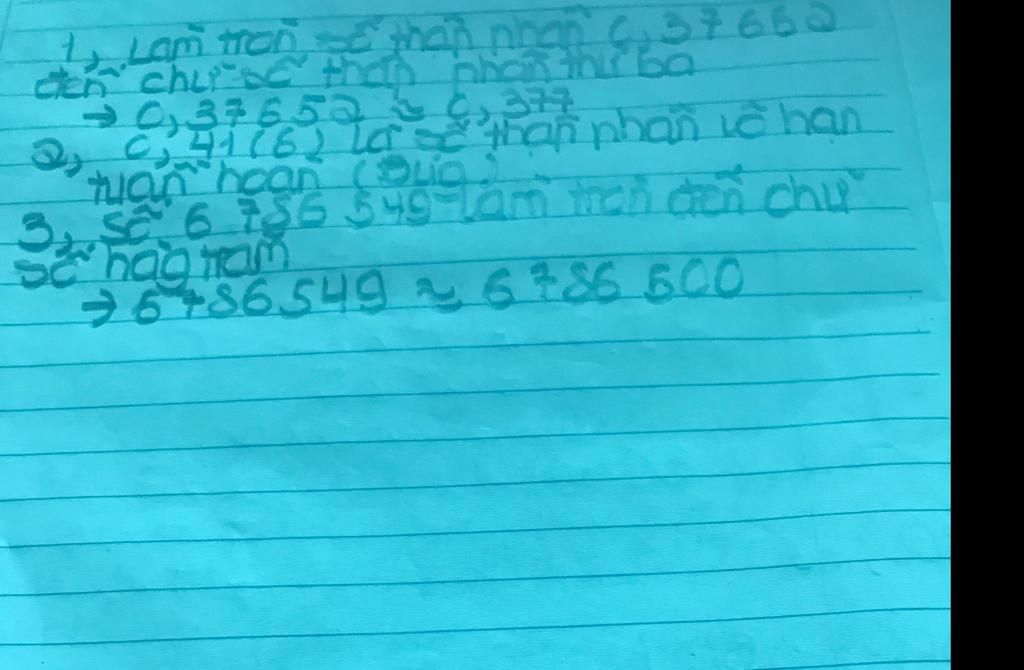 1, Làm tròn số thập phân 0,37652
đến chữ số thập phân thứ ba
→ 0,37652 ≈ 0,377
2, 0,41(6) là số thập phân vô hạn
tuần hoàn (Đúg)
3, số 6 786 549 làm tròn đến chữ
số hàg trăm
→ 6 786 549 ≈ 6 786 500